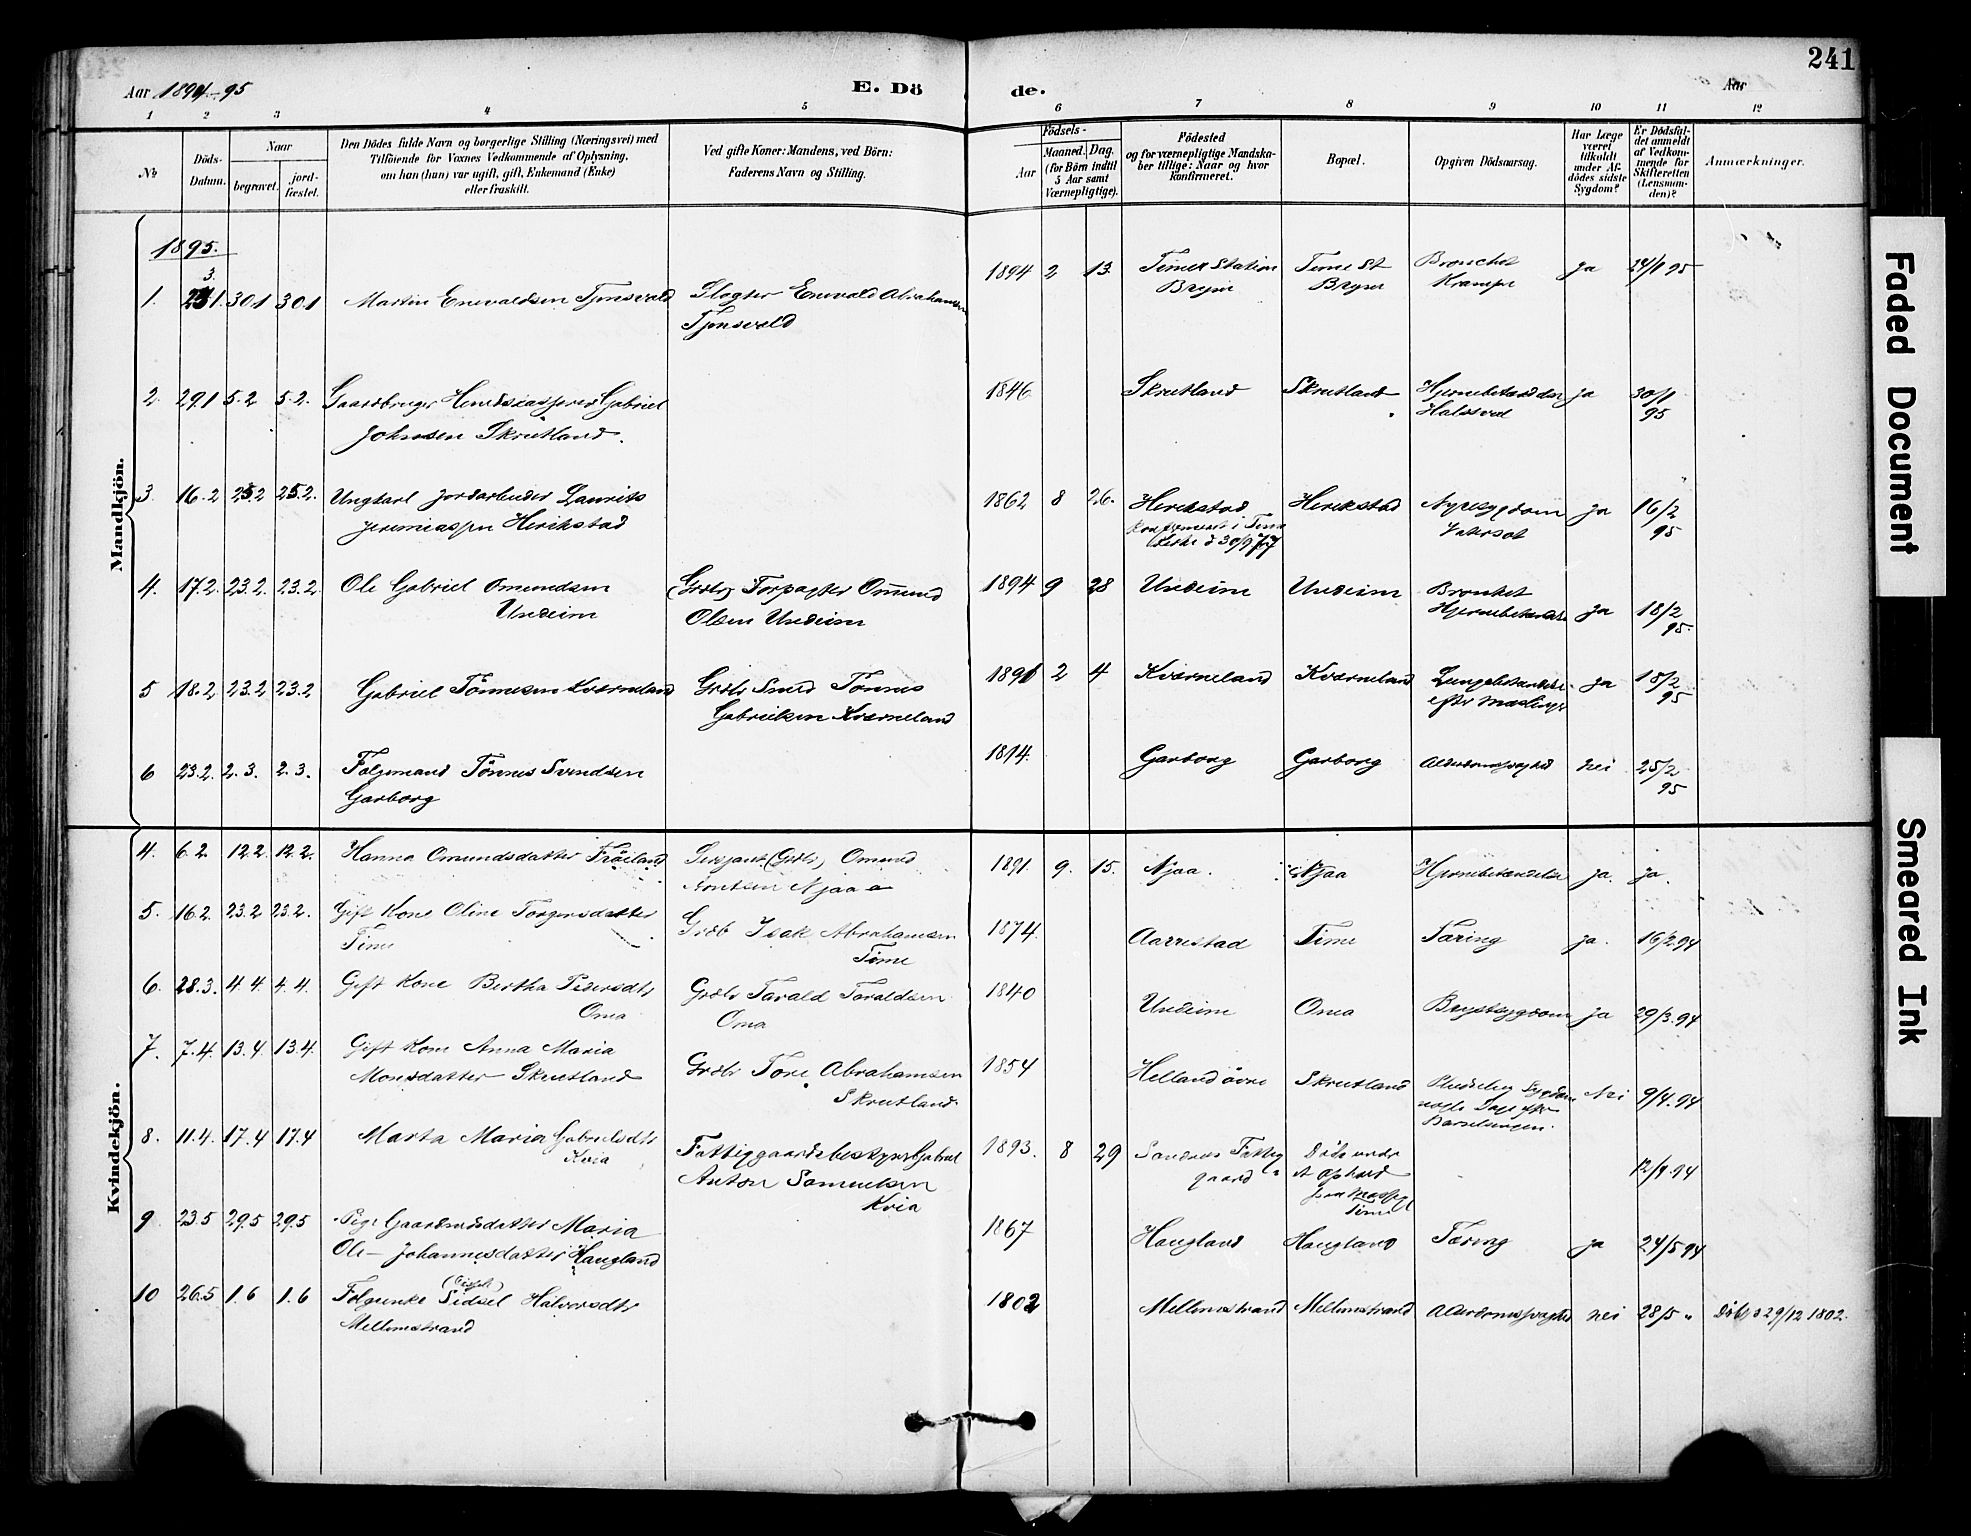 241
Aar 1894-95
E. Dö
de.
Aar
1 2 3 4 5 6 7 8 9 10 11 12
No
Döds-
Datum.
Naar
begravet.
jord-
fæstet.
Den Dödes fulde Navn og borgerlige Stilling (Næringsvei) med
Tilföiende for Voxnes Vedkommende af Oplysning,
om han (hun) var ugift, gift, Enkemand (Enke)
eller fraskilt.
Ved gifte Koner: Mandens, ved Börn:
Faderens Navn og Stilling.
Födsels-
Aar
Maaned. Dag.
(for Börn indtil
5 Aar samt
Værnepligtige).
Födested
og for værnepligtige Mandska-
ber tillige: Naar og hvor
konfirmeret.
Bopæl.
Opgiven Dödsaarsag.
Har Læge
været
tilkaldt
under Af-
dödes sidste
Sygdom?
Er Dödsfal-
det anmeldt
af Vedkom-
mende for
Skifteretten
(Lensman-
den)?
Anmærkninger.
Mandkjön.
1895.
1. 30.1 30.1 Martin Enevaldsen Tjensvold Slagter Enevald Abrahamsen 1894 2 13. Time Station Time St Bronchit Ja 24/1 95
Tjensvold Bryne Bryne Krampe
2. 29.1 5.2 5.2. Gaardbruger Gabriel 1846 Skretland Skretland Hjernebetændelse ja 30/1
Johnsen Skretland. 95
3. 16.2 25.2 25.2. Ungkarl Jordarbeider Laurits 1862 8 26. Herikstad Herikstad Nyresygdom ja 16/2
Jeremiassen Herikstad Kirke d 30/9 77 95
4. 17.2. 23.2. 23.2. Ole Gabriel Omundsen Forpagter Omund 1894 9 28 Undeim Undeim Bronkit ja 18/2
Undeim Olsen Undeim Hjernebetændelse 95.
5 18.2 23.2 23.2 Gabriel Tönnesen Kværneland Grdbr Smed Tönnes 1891 2 4 Kværneland Kværneland Lungebetændelse ja 18/2
Gabrielsen Kværneland efter Mæslinger 95
6 23.2. 2.3. 2.3. Folgemand Tönnes Svendsen 1814. Garborg Garborg Alderdomssvaghed Nei 25/2
Garborg 95
Kvindekjön.
4. 6.2. 12.2. 12.2. Hanna Omundsdatter Fröiland Sersjant (Grdbr) Omund 1891. 9. 15. Njaa. Njaa Hjernebetændelse ja. ja.
Njaa
5. 16.2. 23.2 23.2. Gift Kone Oline Torgersdatter Grdb Isak Abrahamsen 1874. Aarrestad Time Tæring ja. 16/2.94
Time Time
6. 28.3. 4.4 4.4. Gift Kone Bertha Pedersdtr Grdbr Tarald Taraldsen 1840 Undeim Oma Brystsygdom ja 29/3.94
Oma Oma
7. 7.4. 13.4 13.4. Gift Kone Anna Maria Grdbr Tore Abrahamsen 1854 Helland övre Skretland Pludselig Sygdom Nei 9/4.94
Monsdatter Skretland Skretland. nogle Dage efter
Barselsengen.
8. 11.4. 17.4 17.4 Marta Maria Gabrielsdtr Fattiggaardsbestyrer Gabriel 1893. 8 29 Sandnes Fattig- Döde under 12/4.94
Kvia Anton Samuelsen gaard et Ophold
Kvia Time
9 23.5 29.5 29.5 Pige Gaardmdsdatter Maria 1867 Haugland Haugland Tæring ja 24/5 94
Ole- Johannesdatter Haugland
10 26.5 1.6 1.6 Folgenke Sidsel Halvorsdtr 1802 Mellemstrand Mellemstrand Alderdomssvaghed Nei 28/5 " Döbt d 29/12 1802.
Mellemstrand
Faded Document
Smeared Ink